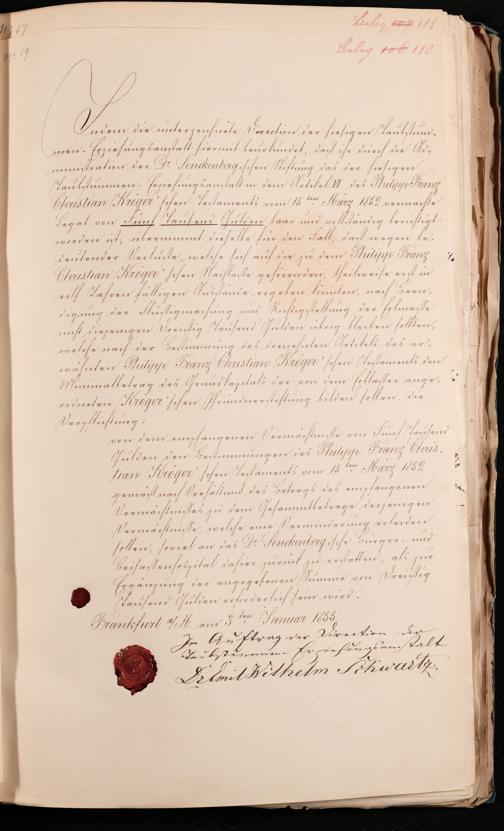 Beilag 111
Beilag 106 110
Indem die unterzeichnete Direction der hiesigen Taubstum-
men-Erziehungsanstalt hiermit beurkundet, daß ihr durch die Ad-
ministration der Dr. Senckenberg'schen Stiftung das der hiesigen
Taubstummen-Erziehungsanstalt in dem Artikel VI des Philipp Franz
Christian Kröger'schen Testaments vom 15ten März 1852 vermachte
Legat von Fünf Tausend Gulden baar und vollständig berichtigt
worden ist, übernimmt dieselbe für den Fall, daß wegen be-
deutender Verluste, welche sich auf die zu dem Philipp Franz
Christian Kröger'schen Nachlasse gehörenden, theilweise erst in
acht Jahren fälligen Ausstände ergeben könnten, nach Been-
digung der Flüssigmachung und Richtigstellung der Erbmasse
nicht diejenigen Dreißig Tausend Gulden übrig bleiben sollten,
welche nach der Bestimmung des dreizehnten Artikels des er-
wähnten Philipp Franz Christian Kröger'schen Testaments den
Minimalbetrag des Grundkapitals der von dem Erblasser ange-
ordneten Kröger'schen Pfründnerstiftung bilden sollen, die
Verpflichtung:
von dem empfangenen Vermächtnisse von Fünf Tausend
Gulden den Bestimmungen des Philipp Franz Chris-
tian Kröger'schen Testaments vom 15ten März 1852
gemäß nach Verhältniß des Betrags des empfangenen
Vermächtnisses zu dem Gesammtbetrage derjenigen
Vermächtnisse, welche eine Verminderung erleiden
sollen, soviel an das Dr. Senckenberg'sche Bürger- und
Beisassenhospital dahier zurück zu erstatten, als zur
Ergänzung der angegebenen Summe von Dreißig
Tausend Gulden erforderlich sein wird.
Frankfurt a/M. am 3ten Januar 1855.
Im Auftrag der Direction der
Taubstummen Erziehungsanstalt
Wilhelm Schwartz